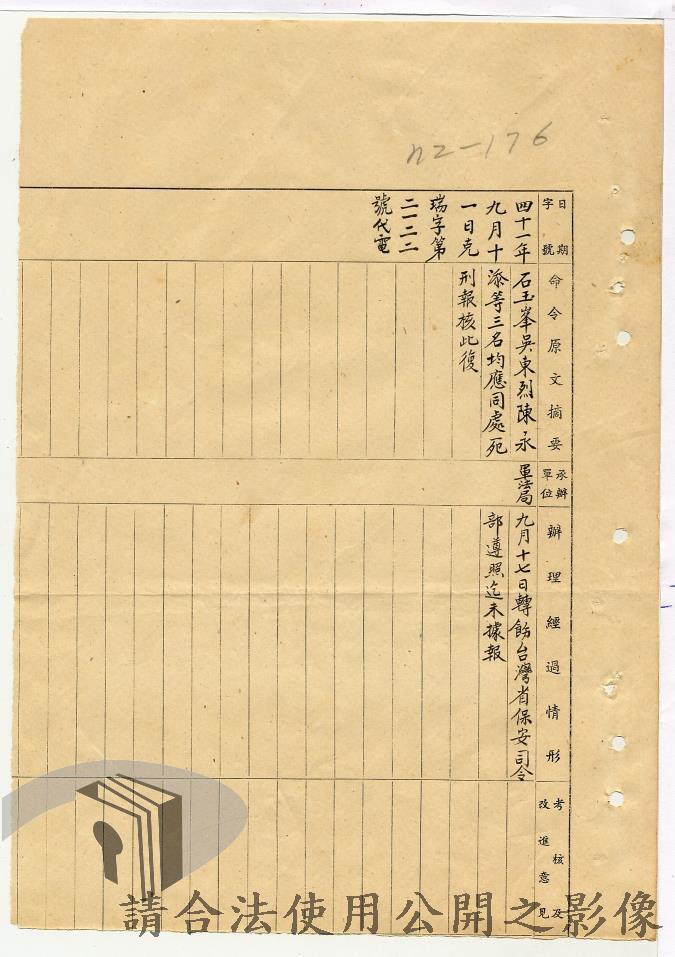 n2-176
日期
字號
命令原文摘要
承辦
單位
辦理經過情形
考核及
改進意見
四十一年
九月十
一日克
瑞字第
二一二二
號代電
石玉峯吳東烈陳永
添等三名均應同處死
刑報核此復
軍法局
九月十七日轉飭台灣省保安司令
部遵照迄未據報
請合法使用公開之影像